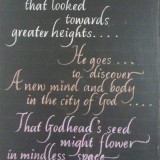 that looked
towards
greater heights....
He goes...
to discover
A new mind and body
in the city of God....
That Godhead's seed
might flower
in mindless space